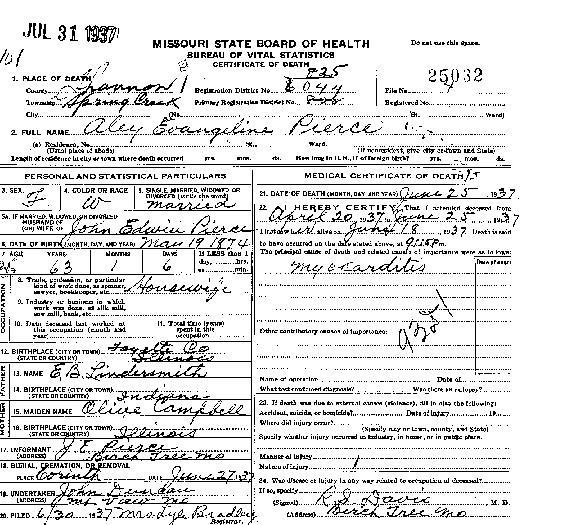 JUL 31 1937
MISSOURI STATE BOARD OF HEALTH
Do not use this space.
BUREAU OF VITAL STATISTICS
CERTIFICATE OF DEATH
1. PLACE OF DEATH
County Shannon Registration District No. File No. 25032
Township Spring Creek Primary Registration District No. Registered No.
City (No. St. Ward)
2. FULL NAME Aley Evangeline Pierce
(a) Residence, No. St. Ward.
(Usual place of abode) (If nonresident, give city or town and State)
Length of residence in city or town where death occurred yrs. mos. ds. How long in U. S., if of foreign birth? yrs. mos. ds.
PERSONAL AND STATISTICAL PARTICULARS
3. SEX F 4. COLOR OR RACE W 5. SINGLE, MARRIED, WIDOWED, OR DIVORCED (write the word) married
5A. IF MARRIED, WIDOWED, OR DIVORCED
HUSBAND OF
(OR) WIFE OF John Edwin Pierce
6. DATE OF BIRTH (MONTH, DAY, AND YEAR) May 19 1874
7. AGE YEARS 63 MONTHS DAYS 6 If LESS than 1 day, hrs. or min.
OCCUPATION
8. Trade, profession, or particular kind of work done, as spinner, sawyer, bookkeeper, etc. Housewife
9. Industry or business in which work was done, as silk mill, saw mill, bank, etc.
10. Date deceased last worked at this occupation (month and year)
11. Total time (years) spent in this occupation
12. BIRTHPLACE (CITY OR TOWN) Fayette Co
(STATE OR COUNTRY) Illinois
FATHER
13. NAME E. B. Lindersmith
14. BIRTHPLACE (CITY OR TOWN)
(STATE OR COUNTRY) Indiana
MOTHER
15. MAIDEN NAME Olive Campbell
16. BIRTHPLACE (CITY OR TOWN)
(STATE OR COUNTRY) Illinois
17. INFORMANT J. E. Pierce
(ADDRESS) Birch Tree Mo
18. BURIAL, CREMATION, OR REMOVAL
PLACE Corinth DATE June 27 1937
19. UNDERTAKER John Duncan
(ADDRESS) Mt. View Mo.
20. FILED 6/30 1937 Mrs Dyle Bradley
Registrar.
MEDICAL CERTIFICATE OF DEATH
21. DATE OF DEATH (MONTH, DAY, AND YEAR) June 25 1937
22. I HEREBY CERTIFY, That I attended deceased from
April 20 1937 June 25 1937
I last saw alive on June 18 1937 Death is said
to have occurred on the date stated above, at
The principal cause of death and related causes of importance were as follows:
Date of onset
myocarditis
Other contributory causes of importance:
Name of operation Date of
What test confirmed diagnosis? Was there an autopsy?
23. If death was due to external causes (violence), fill in also the following:
Accident, suicide, or homicide? Date of injury 19
Where did injury occur?
(Specify city or town, county, and State)
Specify whether injury occurred in industry, in home, or in public place.
Manner of injury
Nature of injury
24. Was disease or injury in any way related to occupation of deceased?
If so, specify
(Signed) R. S. Davis M. D.
(Address) Birch Tree Mo